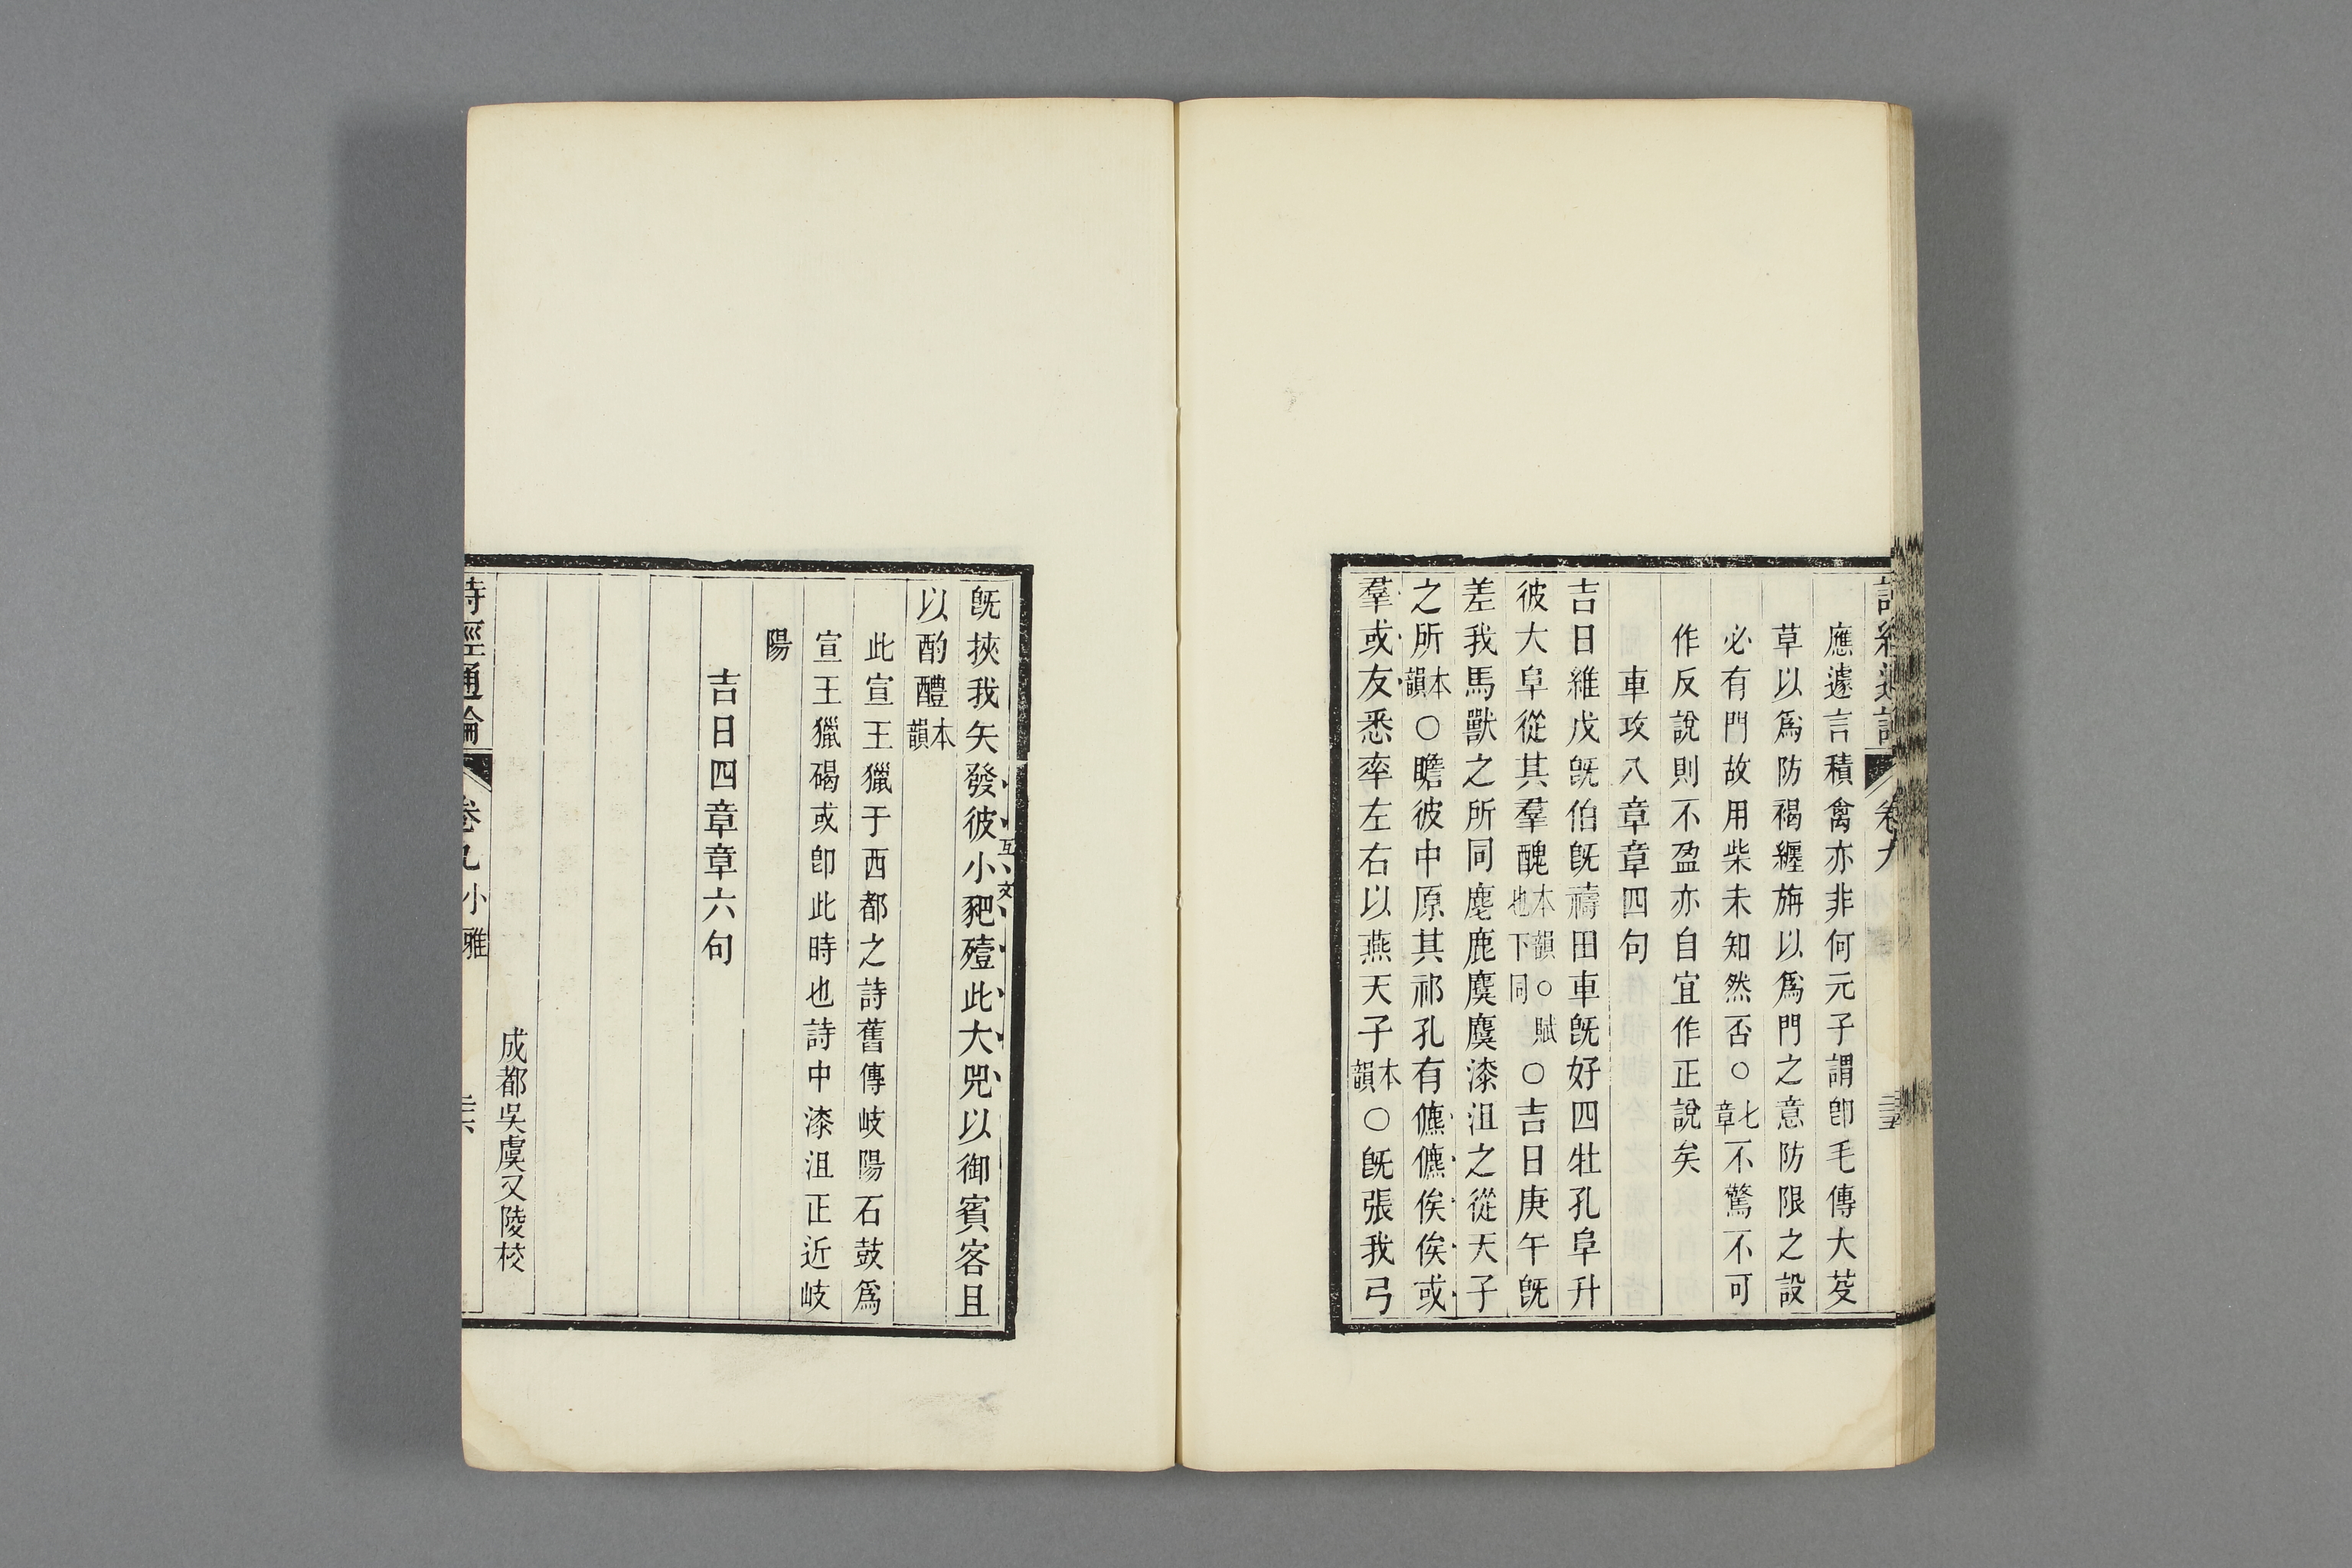 應遽言積禽亦非何元子謂卽毛傳大芟
草以爲防褐纏旃以爲門之意防限之設
必有門故用柴未知然否○七章不驚不可
作反說則不盈亦自宜作正說矣
車攻八章章四句
吉日維戊旣伯旣禱田車旣好四牡孔阜升
彼大阜從其羣醜本韻○賦也下同○吉日庚午旣
差我馬獸之所同麀鹿麌麌漆沮之從天子
之所本韻○瞻彼中原其祁孔有儦儦俟俟或
羣或友悉率左右以燕天子本韻○旣張我弓
旣挾我矢發彼小豝殪此大兕以御賓客且
互文
以酌醴本韻
此宣王獵于西都之詩舊傳岐陽石鼓爲
宣王獵碣或卽此時也詩中漆沮正近岐
陽
吉日四章章六句
成都吳虞又陵校
詩經通論 卷九 小雅